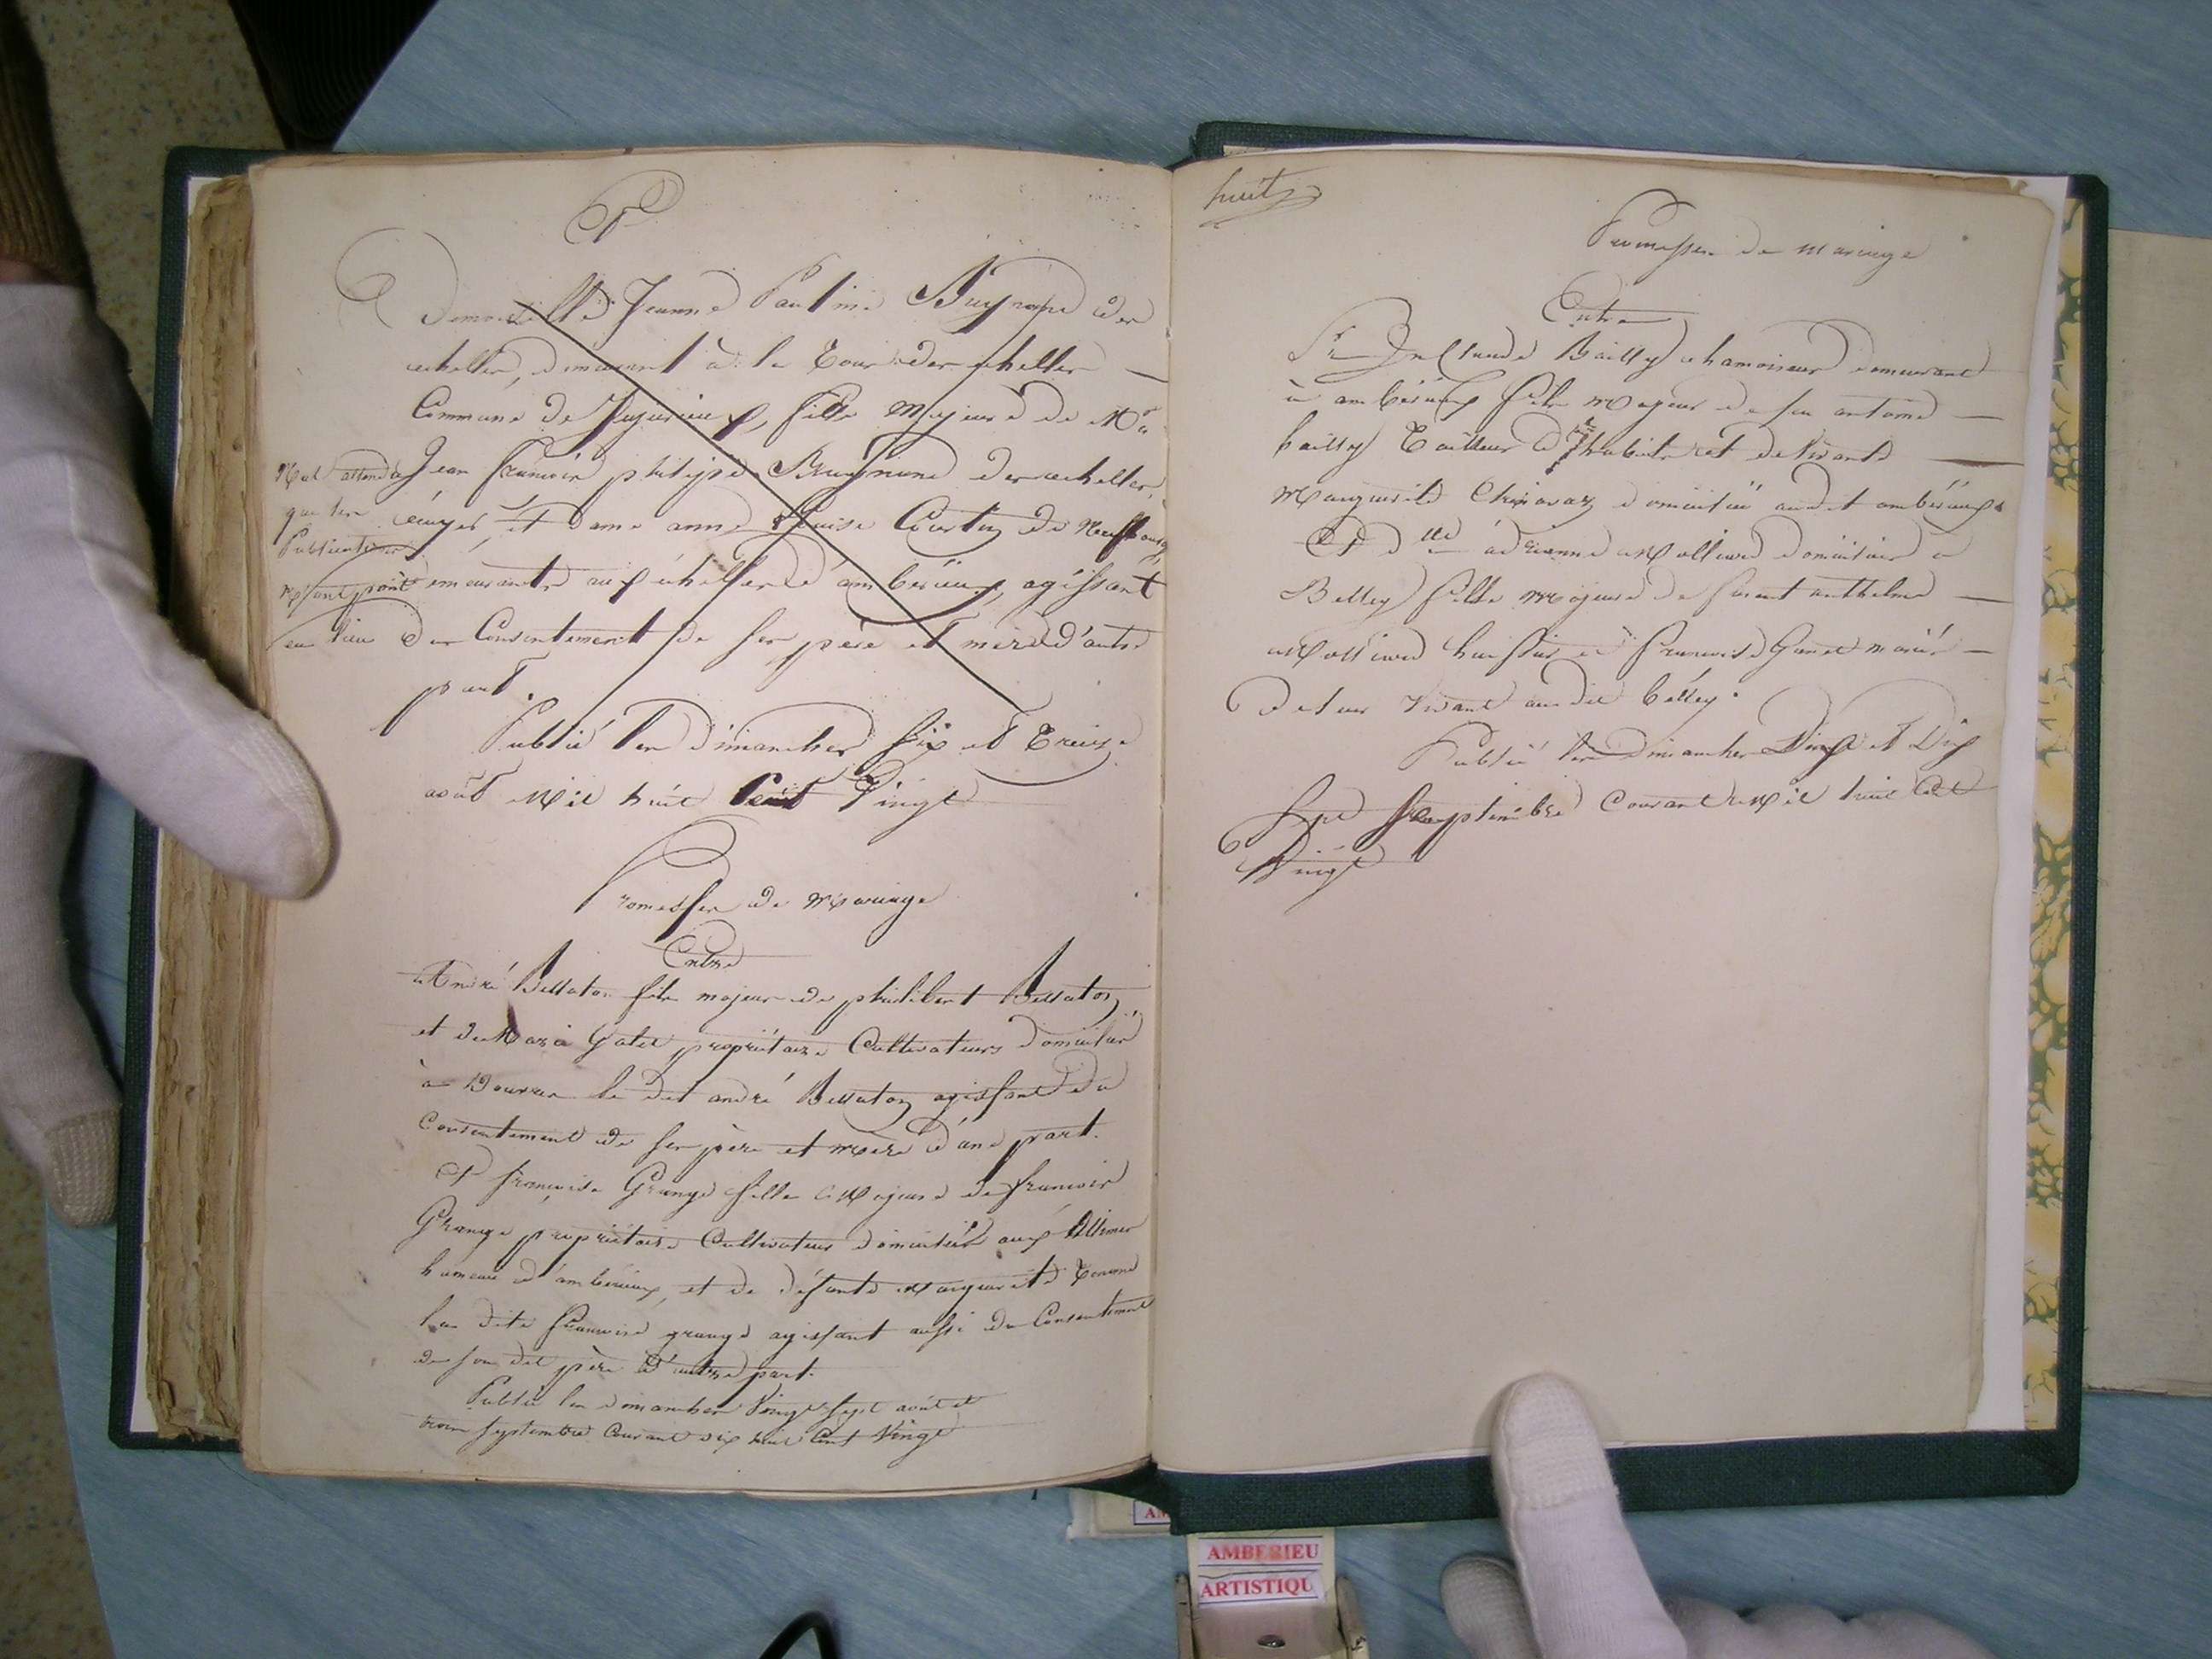 Et
Demoiselle Jeanne Pauline Des
echelles, demeurant à la Tour des echelles
Commune de Jujurieux, fille Majeure de Mr
Jean françois philipe des echelles,
écuyer, et Dame anne Louise Courtin de Neufbourg
demeurants aux échelles d'ambérieux, agissant
du Consentement de ses père et mere d'autre
part.
Nul attendu
que les
Publications
n'ont point
eu lieu
Publié les dimanches six et Treize
août Mil huit Cent Vingt
Promesses de Mariage
Entre
André Bellaton fils majeur de philibert Bellaton
et de Maria Gatel propriétaire Cultivateurs domiciliés
à Douvres le dit andré Bellaton agissant du
Consentement de ses père et mère d'une part.
Et francoise Grange fille Majeure de francois
Grange propriétaire Cultivateur domicilié aux Allimes
hameau d'ambérieux, et de défunte Marguerite Tenand
la dite francoise grange agissant aussi du Consentement
de son dit père d'autre part.
Publié les dimanches Vingt sept août et
trois septembre Courant dix huit Cent Vingt
huit
Promesses de mariage
Entre
Sr Jn Claude Bailly chamoiseur demeurant
à ambérieux fils majeur de feu antoine
bailly Tailleur d'habits et de vivante
Marguerite domicilié audit ambérieux
Et dlle adrianne Mollard domiciliée à
Belley fille Majeure de anthelme
Mollard huissier et francoise mariés
de leur vivant au dit belley.
Publié les Dimanches et Dix
Sept septembre Courant Mil huit Cent
Vingt
AMBERIEU
ARTISTIQU